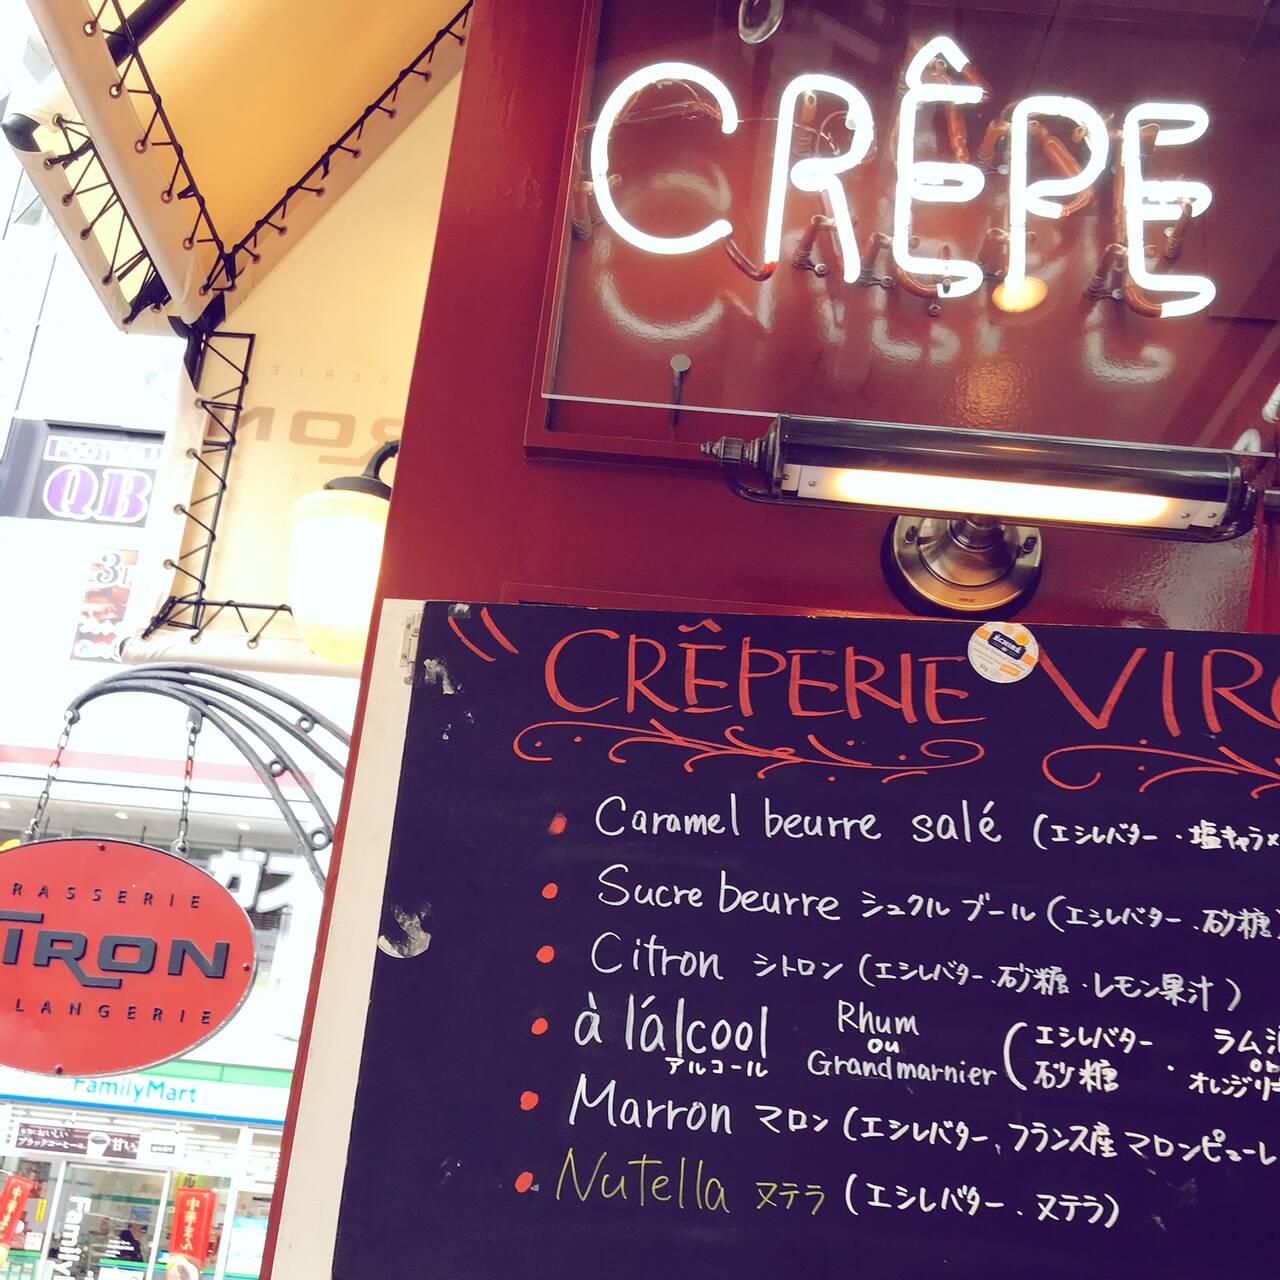 CRÊPE
CRÊPERIE VIRO
ÉCHIRÉ
Caramel beurre salé (エシレバター・塩キャラメ
Sucre beurre シュクル ブール (エシレバター、砂糖
Citron シトロン (エシレバター、砂糖・レモン果汁)
à l'álcool アルコール Rhum ou Grandmarnier (エシレバター 砂糖・ラム酒 or オレンジリ
Marron マロン (エシレバター、フランス産マロンピューレ
Nutella ヌテラ (エシレバター、ヌテラ)
FOOTBALL
QB
3F
RASSERIE
VIRON
LANGERIE
ガス
FamilyMart
ブラックコーヒー
甘い
Family
中華まん